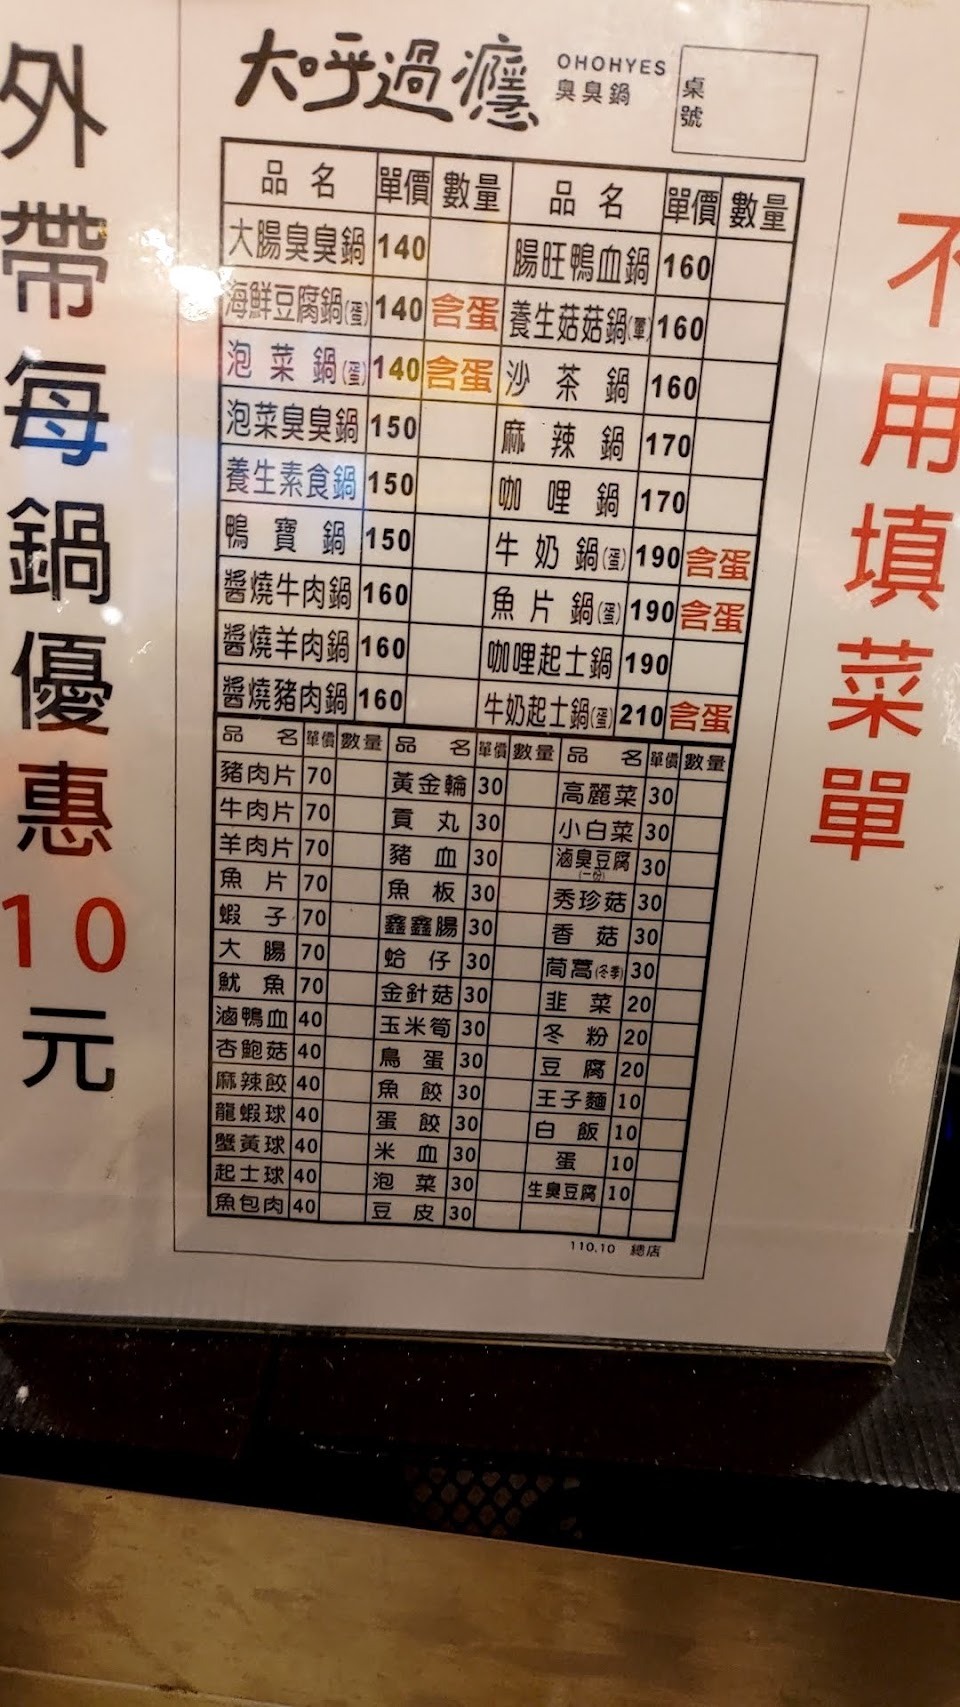 外帶每鍋優惠10元
大呼過癮 OHOHYES 臭臭鍋 桌號
品名 單價 數量 品名 單價 數量
大腸臭臭鍋 140 腸旺鴨血鍋 160
海鮮豆腐鍋(蛋) 140 含蛋 養生菇菇鍋(葷) 160
泡菜鍋(蛋) 140 含蛋 沙茶鍋 160
泡菜臭臭鍋 150 麻辣鍋 170
養生素食鍋 150 咖哩鍋 170
鴨寶鍋 150 牛奶鍋(蛋) 190 含蛋
醬燒牛肉鍋 160 魚片鍋(蛋) 190 含蛋
醬燒羊肉鍋 160 咖哩起士鍋 190
醬燒豬肉鍋 160 牛奶起士鍋(蛋) 210 含蛋
品名 單價 數量 品名 單價 數量 品名 單價 數量
豬肉片 70 黃金輪 30 高麗菜 30
牛肉片 70 貢丸 30 小白菜 30
羊肉片 70 豬血 30 滷臭豆腐(一份) 30
魚片 70 魚板 30 秀珍菇 30
蝦子 70 鑫鑫腸 30 香菇 30
大腸 70 蛤仔 30 茼蒿(冬季) 30
魷魚 70 金針菇 30 韭菜 20
滷鴨血 40 玉米筍 30 冬粉 20
杏鮑菇 40 鳥蛋 30 豆腐 20
麻辣餃 40 魚餃 30 王子麵 10
龍蝦球 40 蛋餃 30 白飯 10
蟹黃球 40 米血 30 蛋 10
起士球 40 泡菜 30 生臭豆腐 10
魚包肉 40 豆皮 30
110.10 總店
不用填菜單